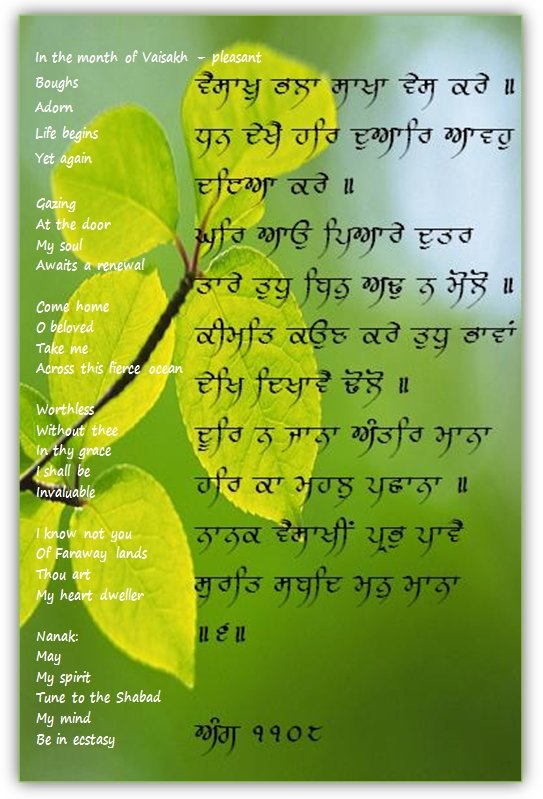 In the month of Vaisakh - pleasant
Boughs
Adorn
Life begins
Yet again
Gazing
At the door
My soul
Awaits a renewal
Come home
O beloved
Take me
Across this fierce ocean
Worthless
Without thee
In thy grace
I shall be
Invaluable
I know not you
Of Faraway lands
Thou art
My heart dweller
Nanak:
May
My spirit
Tune to the Shabad
My mind
Be in ecstasy
ਵੈਸਾਖੁ ਭਲਾ ਸਾਖਾ ਵੇਸ ਕਰੇ ॥
ਧਨ ਦੇਖੈ ਹਰਿ ਦੁਆਰਿ ਆਵਹੁ
ਦਇਆ ਕਰੇ ॥
ਘਰਿ ਆਉ ਪਿਆਰੇ ਦੁਤਰ
ਤਾਰੇ ਤੁਧੁ ਬਿਨੁ ਅਢੁ ਨ ਮੋਲੋਂ ॥
ਕੀਮਤਿ ਕਉਣ ਕਰੇ ਤੁਧੁ ਭਾਵਾਂ
ਦੇਖਿ ਦਿਖਾਵੈ ਢੋਲੋਂ ॥
ਦੂਰਿ ਨ ਜਾਨਾ ਅੰਤਰਿ ਮਾਨਾ
ਹਰਿ ਕਾ ਮਹਲੁ ਪਛਾਨਾ ॥
ਨਾਨਕ ਵੈਸਾਖੀਂ ਪ੍ਰਭੁ ਪਾਵੈ
ਸੁਰਤਿ ਸਬਦਿ ਮਨੁ ਮਾਨਾ
॥੬॥
ਅੰਗ ੧੧੦੮